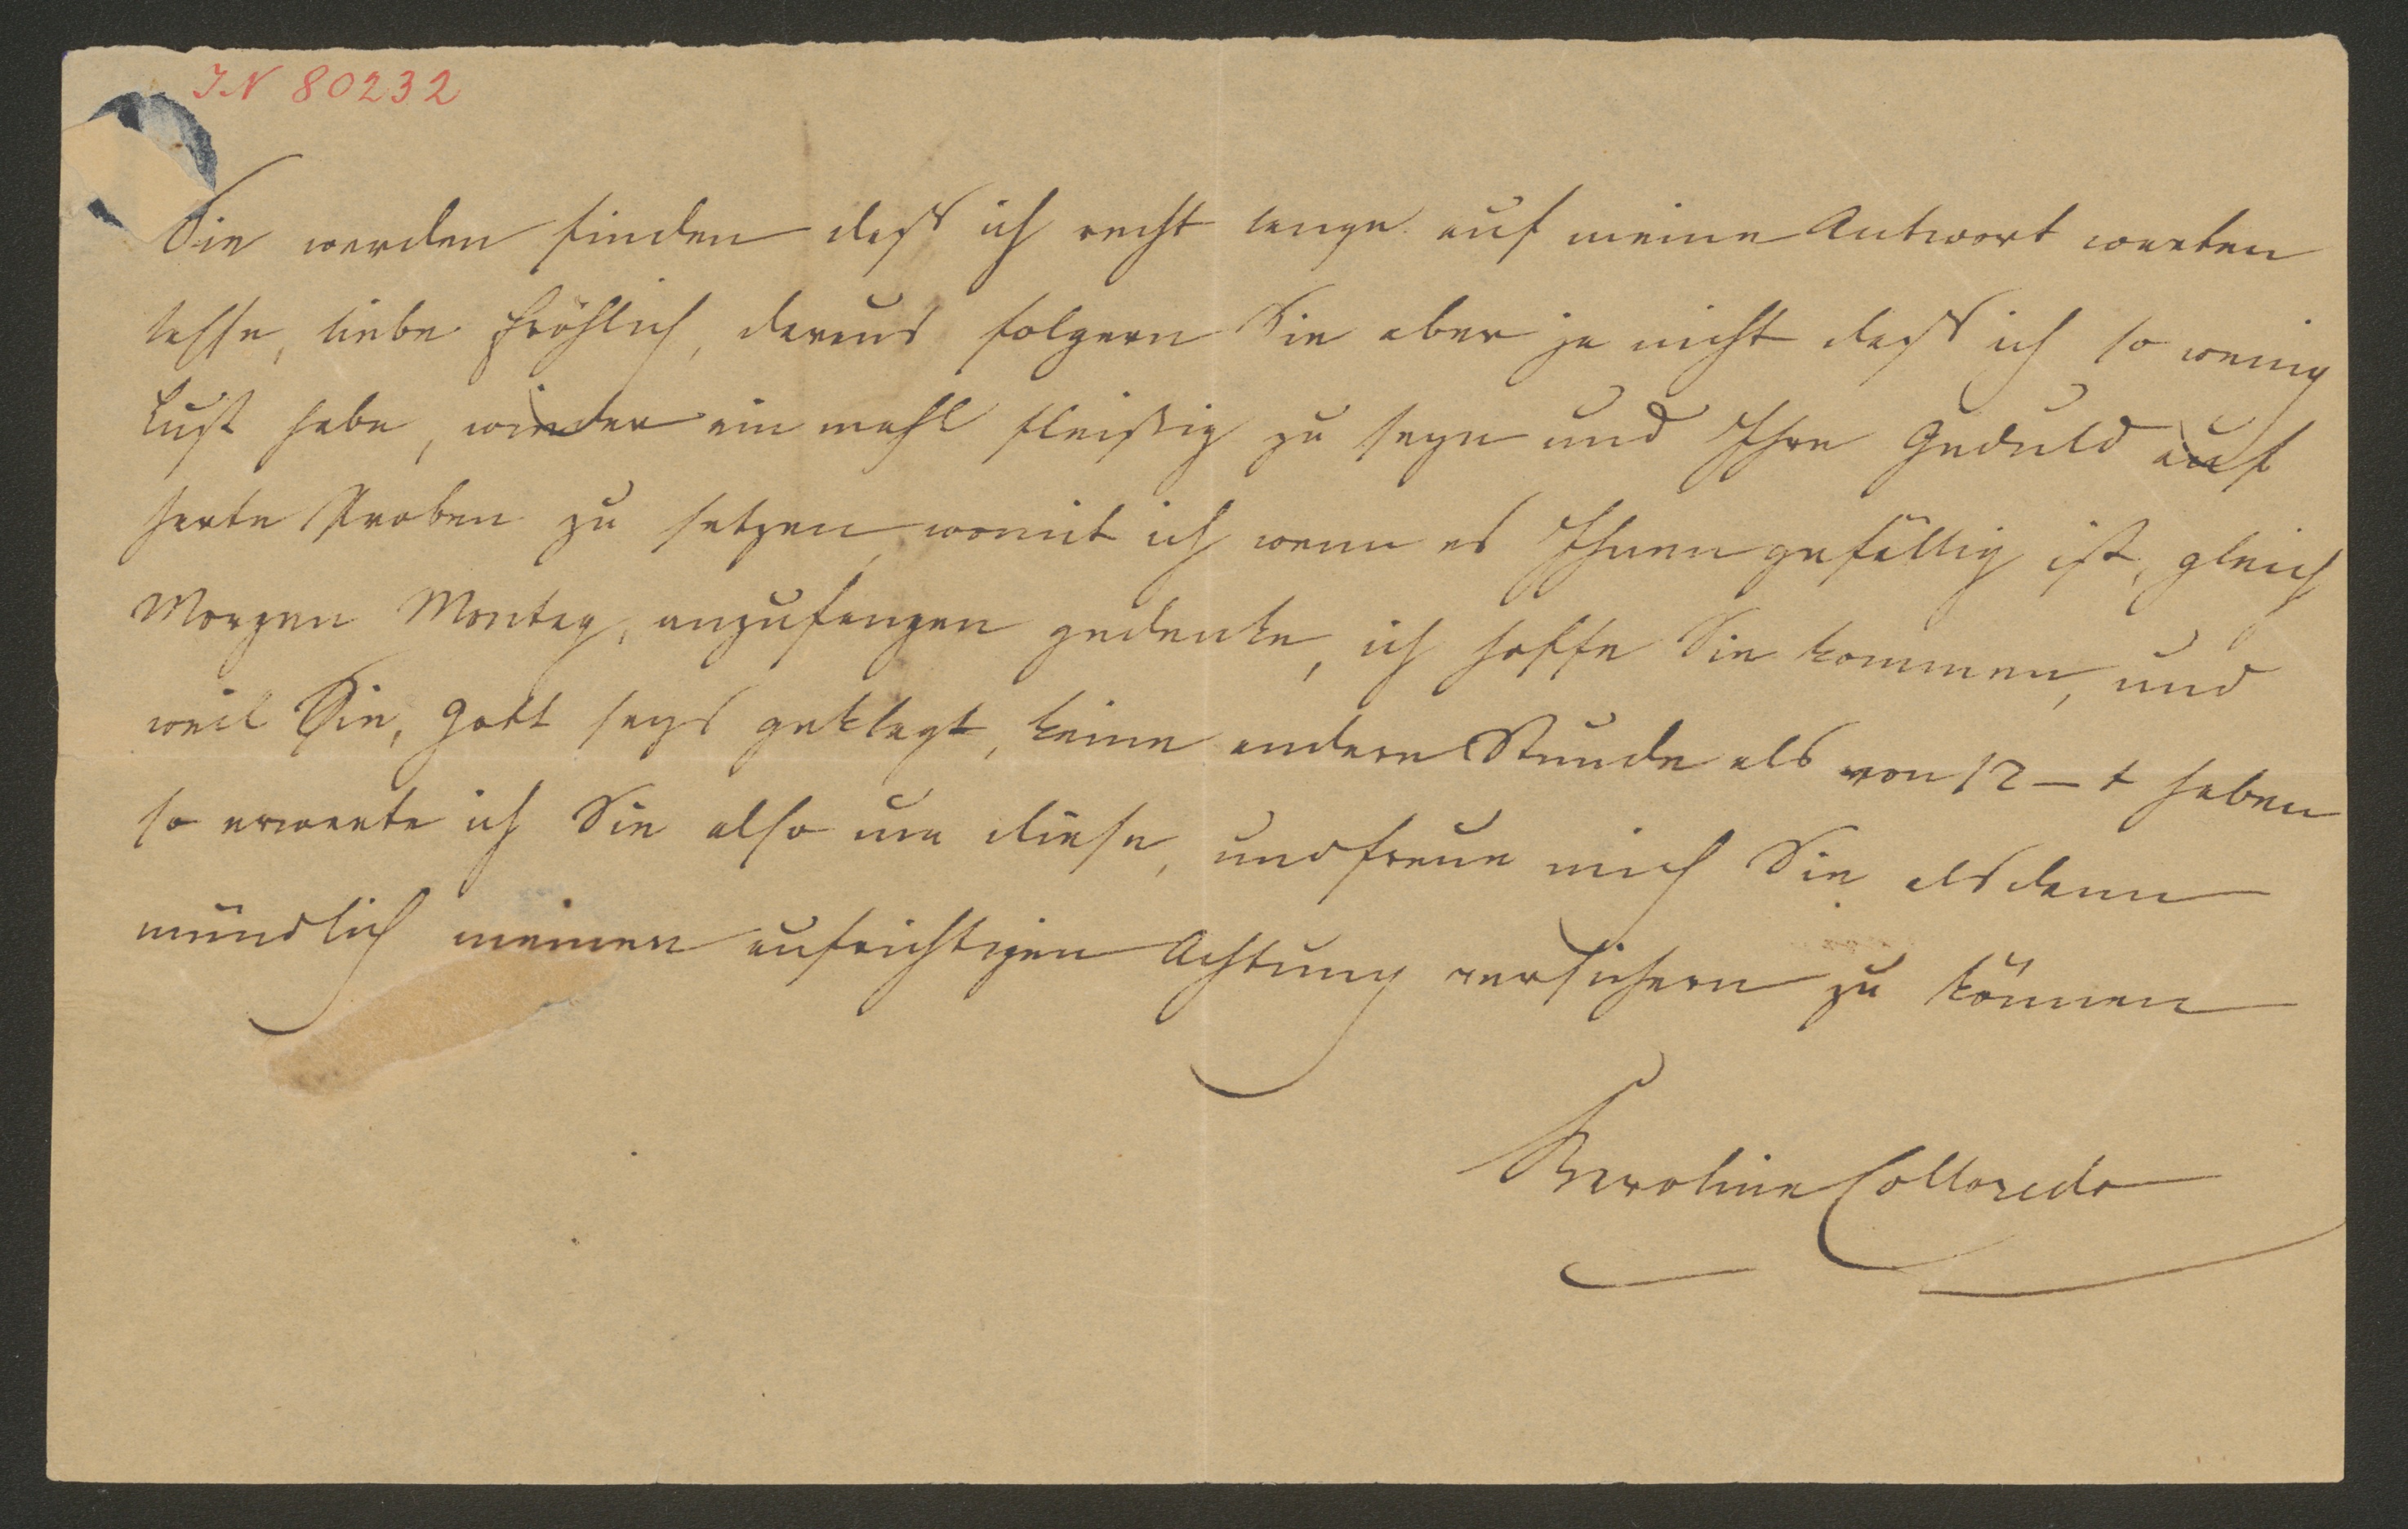 IN 80232
Sie werden finden daß ich recht lange auf meine Antwort warten
lasse, liebe Fröhlich, daraus folgern Sie aber ja nicht daß ich so wenig
Lust habe, wieder ein mahl fleißig zu seyn und Ihre Geduld auf
harte Proben zu setzen, womit ich wenn es Ihnen gefällig ist, gleich
Morgen Montag, anzufangen gedenke, ich hoffe Sie kommen, und
weil Sie, Gott seys geklagt, keine andere Stunde als von 12 – 1 haben
so erwarte ich Sie also um diese, und freue mich Sie alsdann
mündlich meiner aufrichtigen Achtung versichern zu können
Karoline Colloredo